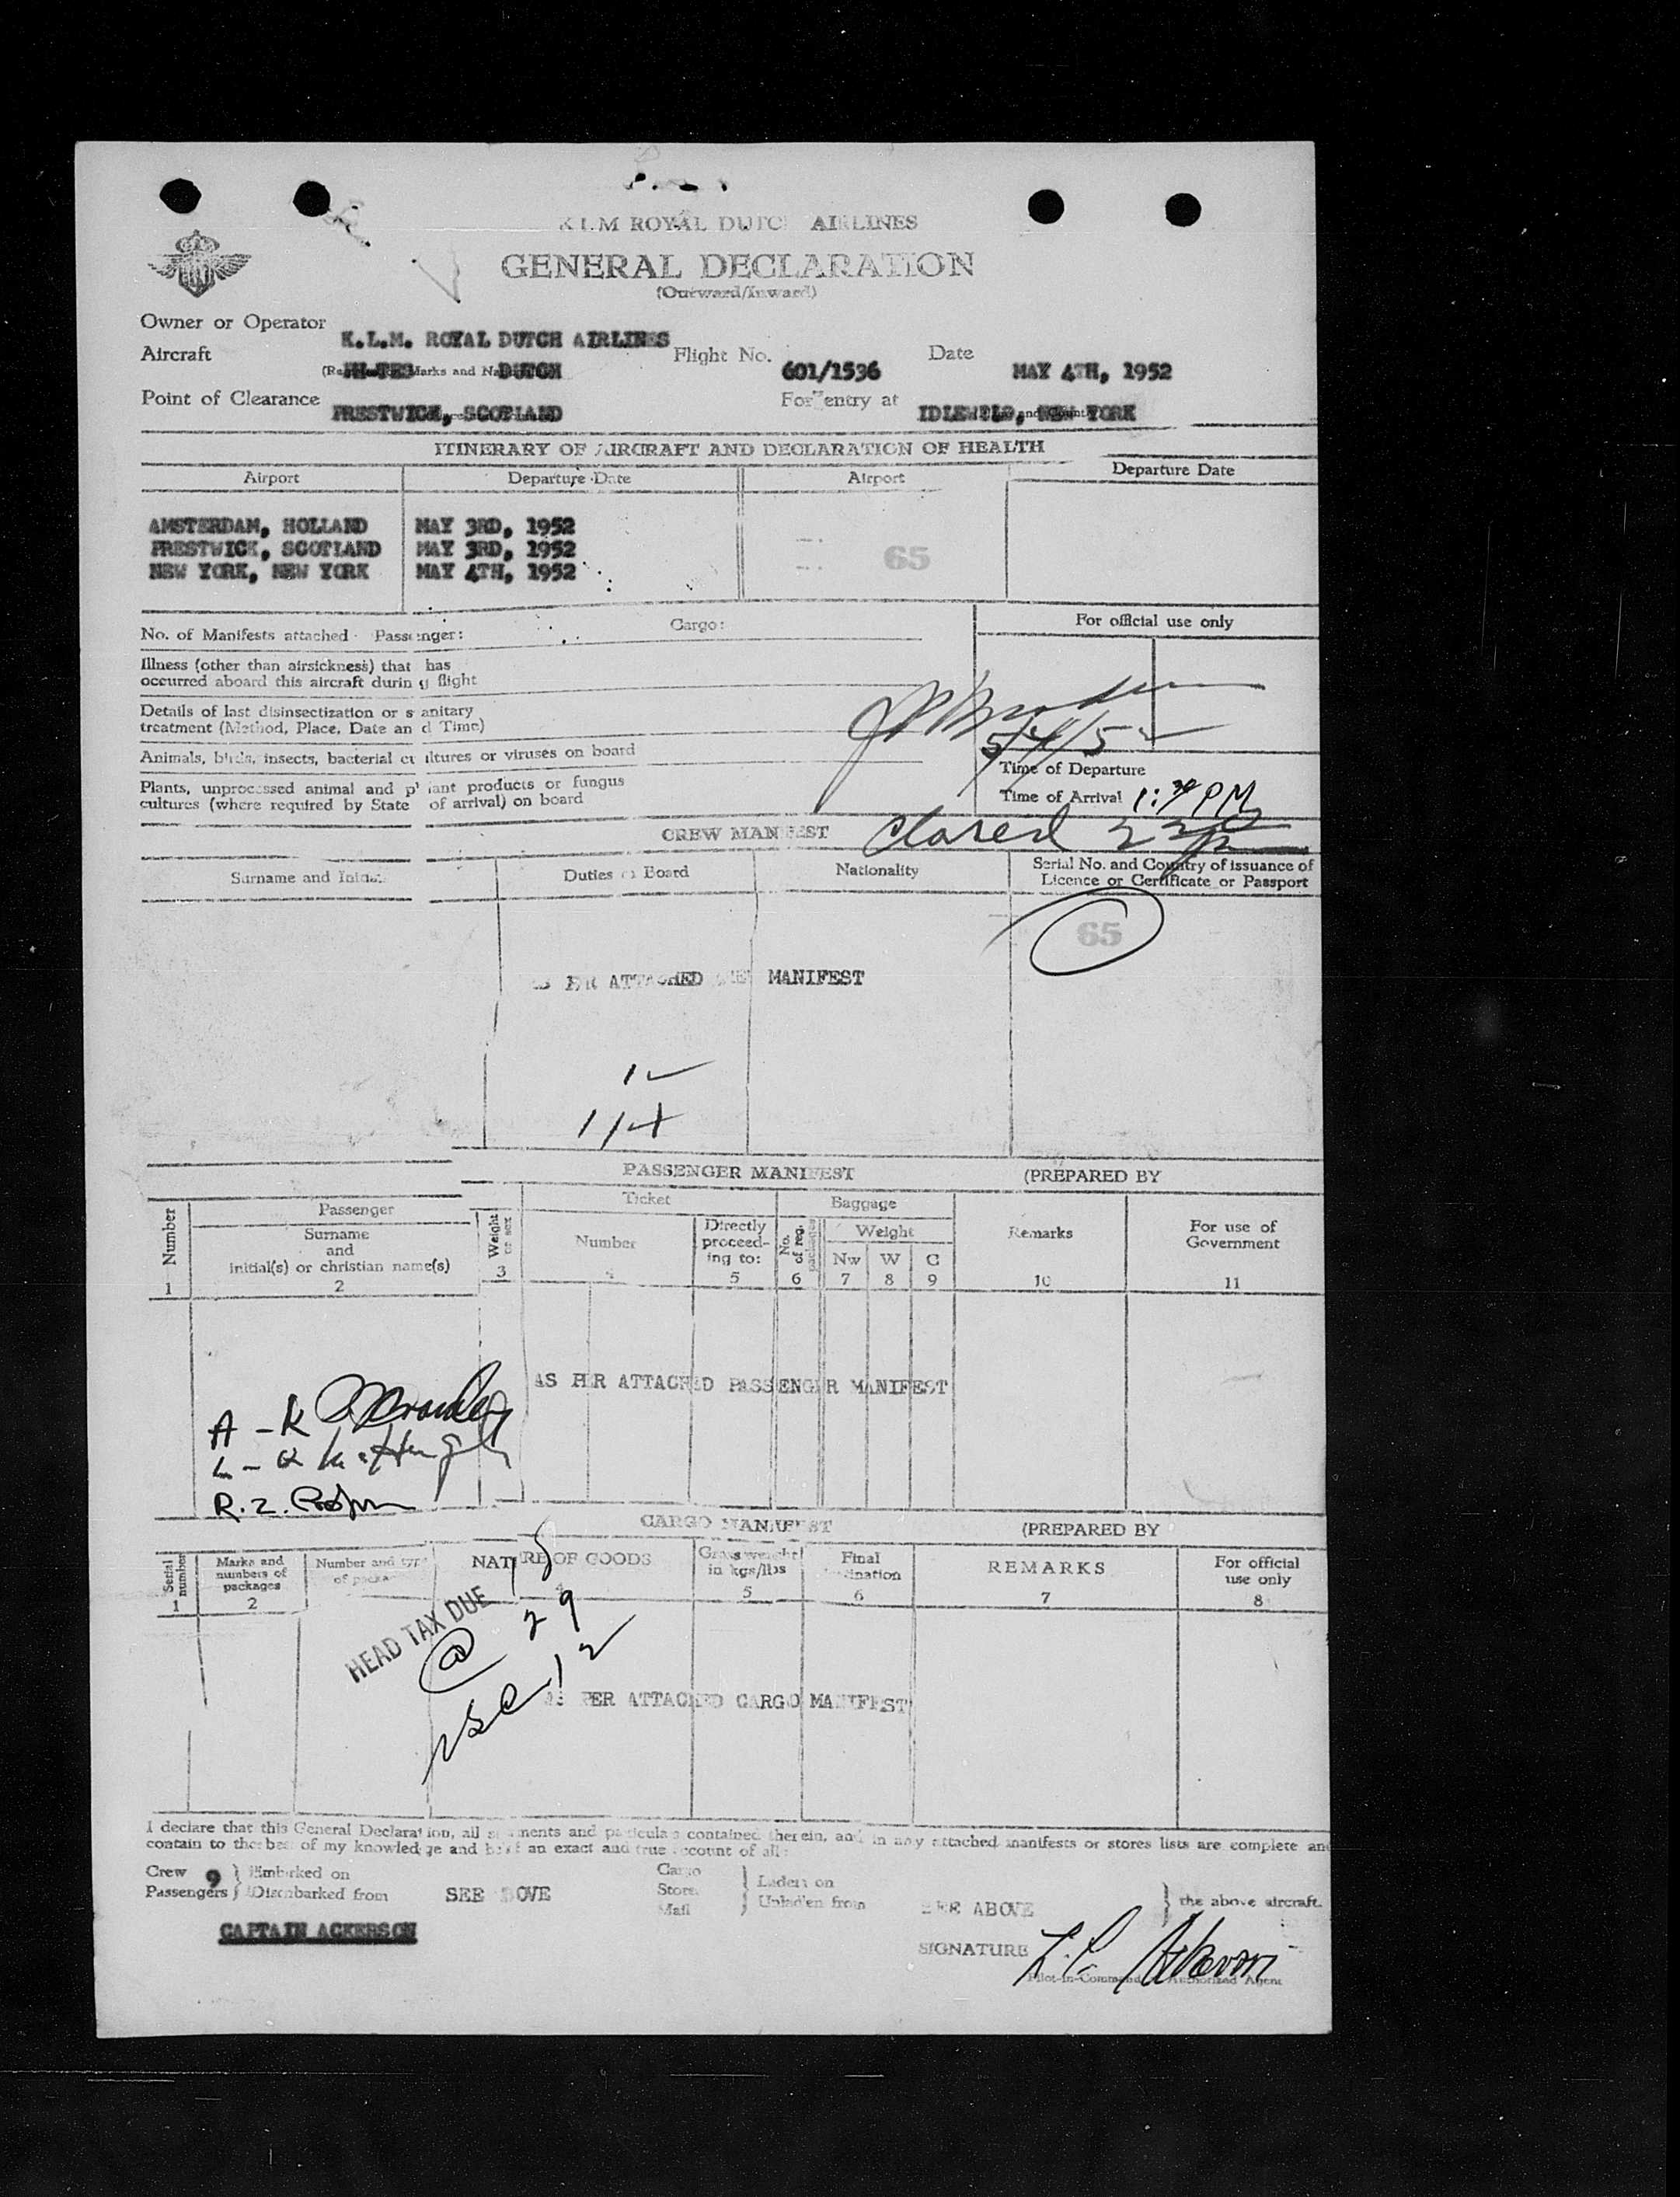 K.L.M ROYAL DUTCH AIRLINES
GENERAL DECLARATION
(Outward/Inward)
Owner or Operator K.L.M. ROYAL DUTCH AIRLINES
Aircraft DUTCH Flight No. 601/1536 Date MAY 4TH, 1952
Point of Clearance PRESTWICK, SCOTLAND For entry at IDLEWILD, NEW YORK
ITINERARY OF AIRCRAFT AND DECLARATION OF HEALTH
Airport Departure Date Airport Departure Date
AMSTERDAM, HOLLAND MAY 3RD, 1952
PRESTWICK, SCOTLAND MAY 3RD, 1952 65
NEW YORK, NEW YORK MAY 4TH, 1952
No. of Manifests attached Passenger: Cargo: For official use only
Illness (other than airsickness) that has
occurred aboard this aircraft during flight
Details of last disinsectization or sanitary
treatment (Method, Place, Date and Time)
5/4/52
Animals, birds, insects, bacterial cultures or viruses on board
Time of Departure
Plants, unprocessed animal and plant products or fungus
cultures (where required by State of arrival) on board
Time of Arrival 1:30 PM
CREW MANIFEST
Surname and Initials Duties on Board Nationality Serial No. and Country of issuance of
Licence or Certificate or Passport
65
AS PER ATTACHED CREW MANIFEST
PASSENGER MANIFEST (PREPARED BY
Number Passenger Weight or sex Ticket Baggage Remarks For use of Government
Surname and initial(s) or christian name(s) Number Directly proceeding to: No. of reg. packages Weight
Nw W C
1 2 3 4 5 6 7 8 9 10 11
AS PER ATTACHED PASSENGER MANIFEST
A - K
R.Z.
CARGO MANIFEST (PREPARED BY
Serial number Marks and numbers of packages Number and type of packages NATURE OF GOODS Gross weight in kgs/lbs Final destination REMARKS For official use only
1 2 4 5 6 7 8
HEAD TAX DUE
@ 29
AS PER ATTACHED CARGO MANIFEST
I declare that this General Declaration, all statements and particulars contained therein, and in any attached manifests or stores lists are complete and
contain to the best of my knowledge and belief an exact and true account of all:
Crew 9 Embarked on Cargo Laden on
Passengers Disembarked from SEE ABOVE Stores Unladen from SEE ABOVE the above aircraft.
Mail
CAPTAIN ACKERSON
SIGNATURE
Pilot-in-Command Authorized Agent